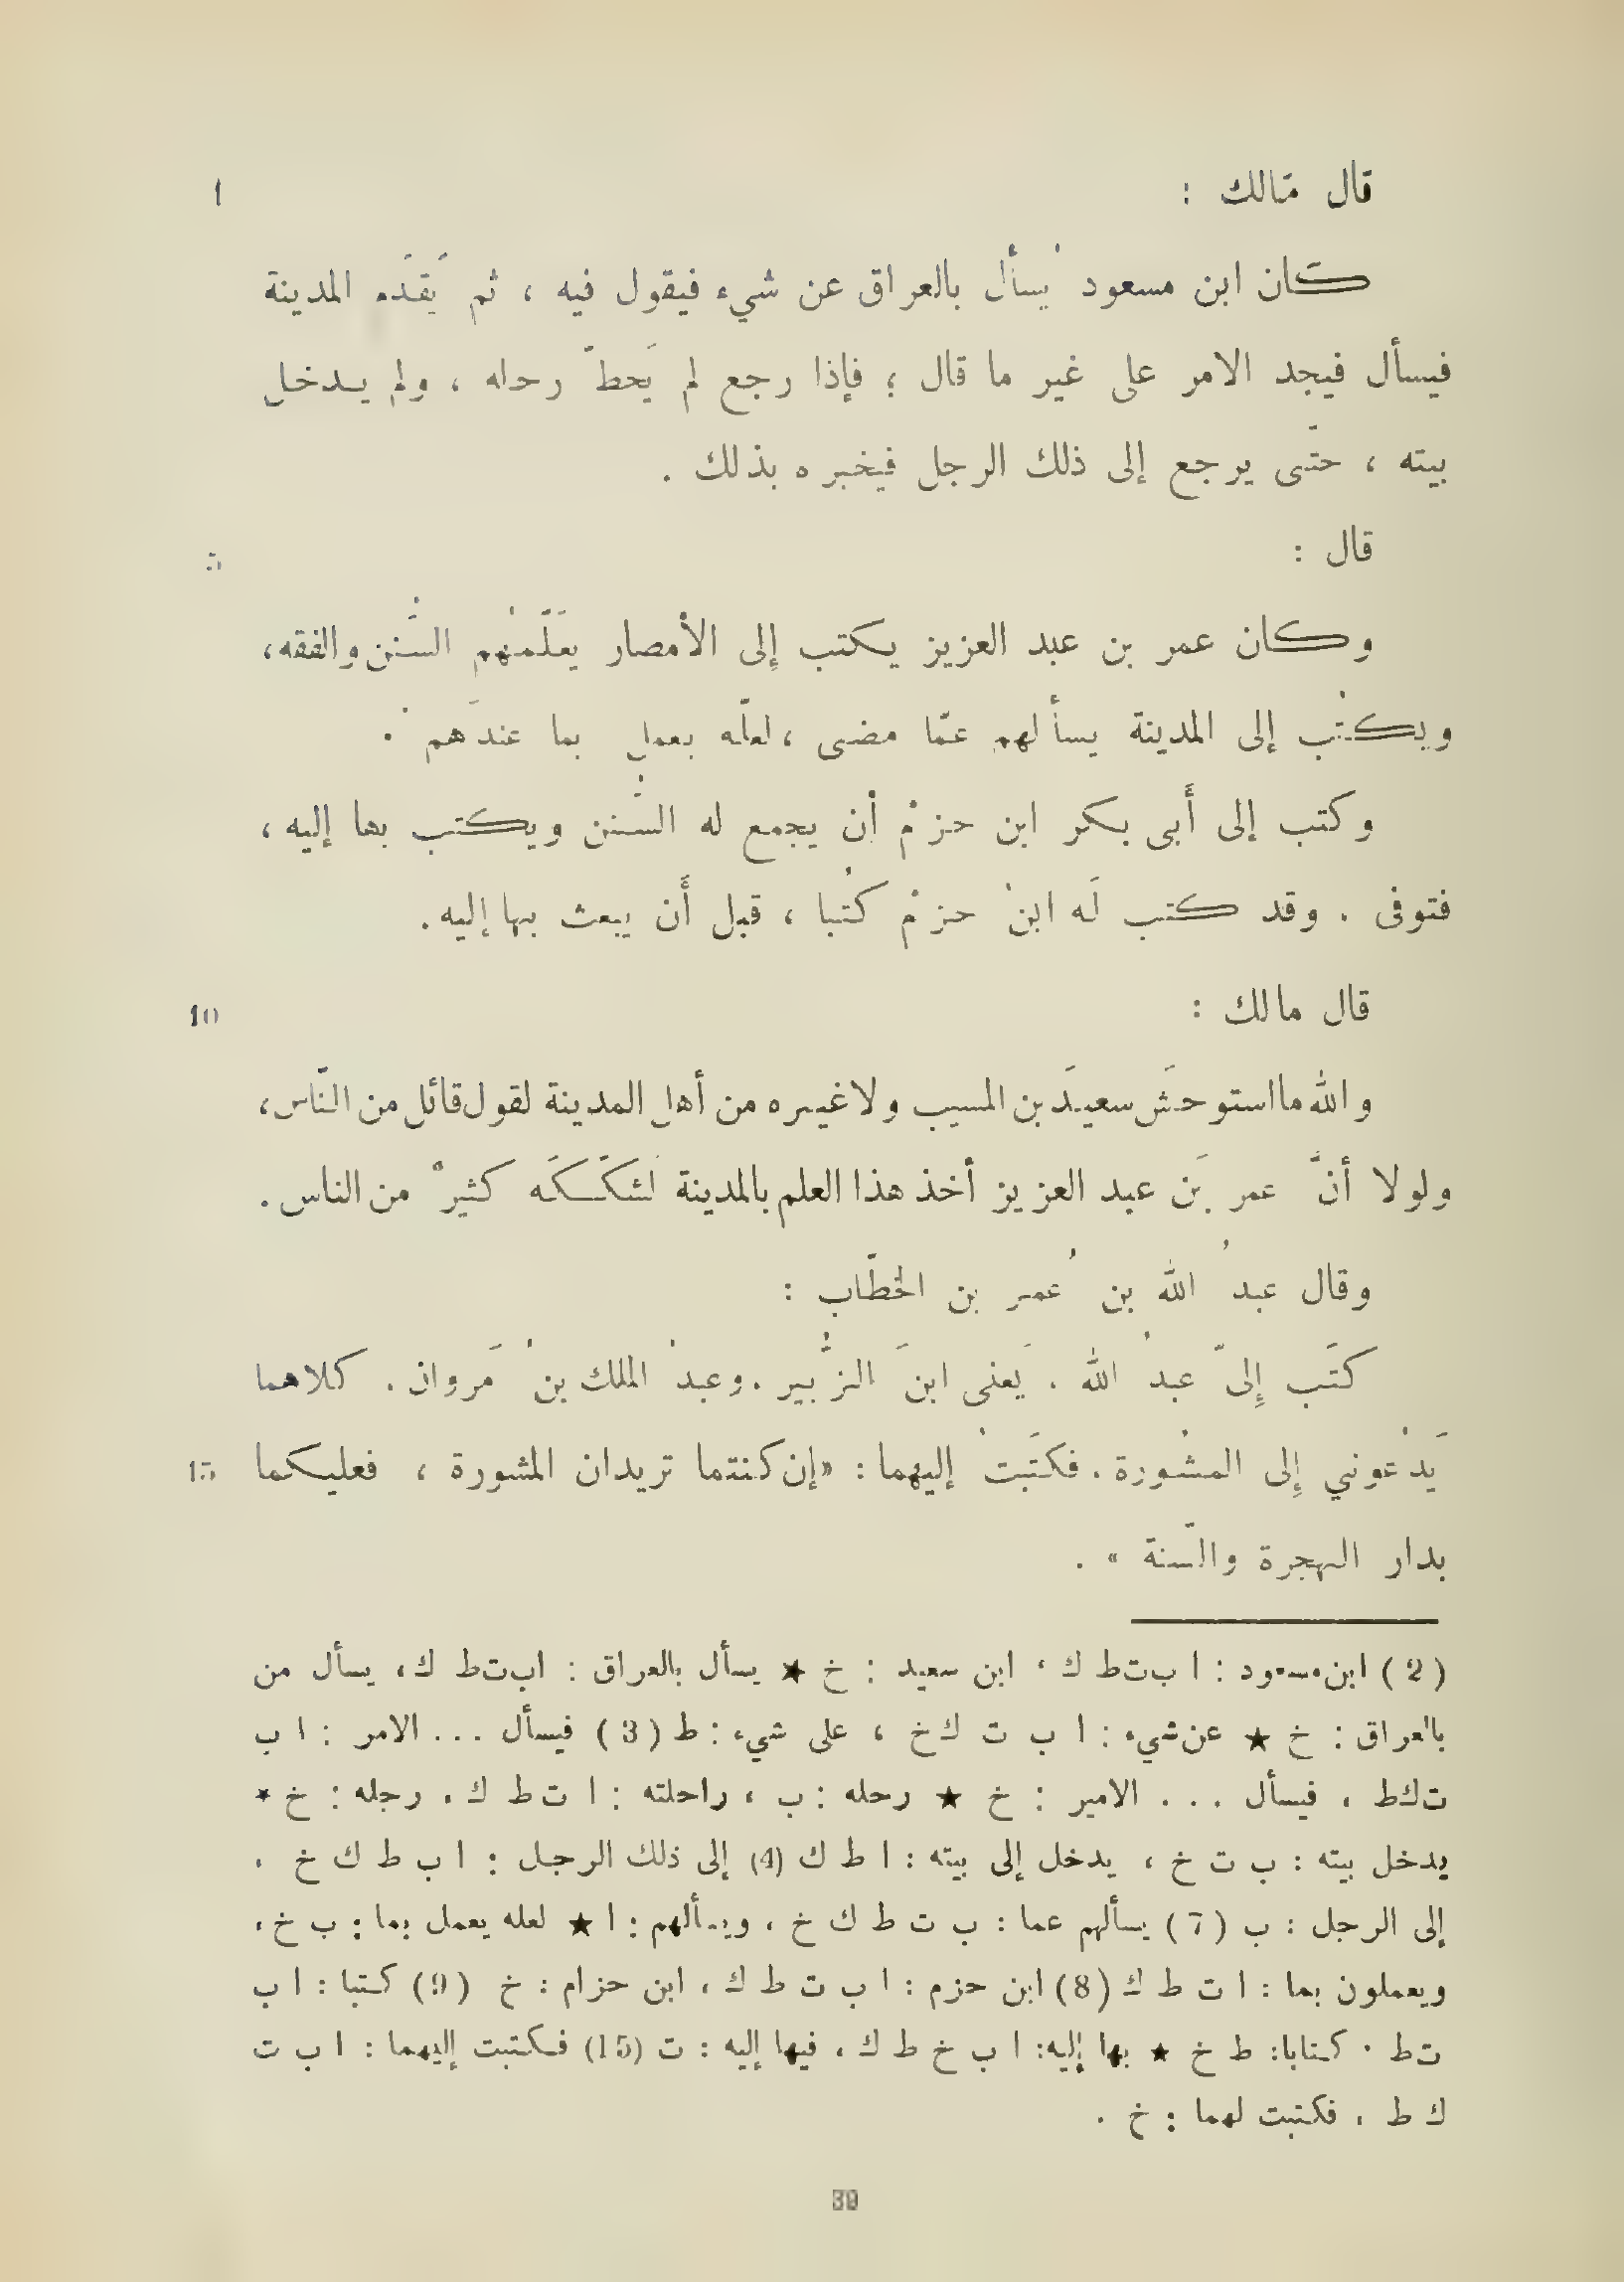 قال مَالك : 1
كَان ابن مسعود يُسأل بالعراق عن شيء فيقول فيه ، ثم يَقدَم المدينة
فيسأل فيجد الامر على غير ما قال ؛ فإذا رجع لم يَحطّ رحله ، ولم يـدخـل
بيته ، حتّى يرجع إلى ذلك الرجل فيخبره بذلك .
قال : 5
وكان عمر بن عبد العزيز يكتب إلى الأمصار يعَلّمُهم السُّنن والفقه،
ويكتُب إلى المدينة يسألهم عمّا مضى ، لعلّه يعمل بما عندَهم .
وكتب إلى أَبى بكر ابن حزمْ أن يجمع له السُّنن ويكتب بها إليه ،
فتوفى . وقد كتب لَه ابنُ حزمْ كتُبا ، قبل أَن يبعث بها إليه.
قال مالك : 10
والله ما استوحَش سعيدَ بن المسيب ولا غيره من أهل المدينة لقول قائل من النّاس،
ولولا أنّ عمر بَن عبد العزيز أخذ هذا العلم بالمدينة لشكَّكَه كثيرْ من الناس.
وقال عبدُ الله بن عُمر بن الخطّاب :
كتَب إِلىّ عبدُ الله . يَعنى ابنَ الزُّبير . وعبدُ الملك بنُ مَروان . كلاهما
يَدْعونني إِلى المشُورة . فكتَبتُ إليهما : «إن كنتما تريدان المشورة ، فعليكما 15
بدار الهجرة والسّنة » .
(2) ابن مسعود : ا ب ت ط ك ، ابن سعيد : خ ★ يسأل بالعراق : ا ب ت ط ك ، يسأل من
بالعراق : خ ★ عن شيء : ا ب ت ك خ ، على شيء : ط (3) فيسأل ... الامر : ا ب
ت ك ط ، فيسأل ... الامير : خ ★ رحله : ب ، راحلته : ا ت ط ك ، رجله : خ ★
يدخل بيته : ب ت خ ، يدخل إلى بيته : ا ط ك (4) إلى ذلك الرجـل : ا ب ط ك خ .
إلى الرجل : ب (7) يسألهم عما : ب ت ط ك خ ، ويسألهم : ا ★ لعله يعمل بما : ب خ ،
ويعملون بما : ا ت ط ك (8) ابن حزم : ا ب ت ط ك ، ابن حزام : خ (9) كتبا : ا ب
ت ط ، كتابا : ط خ ★ بها إليه : ا ب خ ط ك ، فيها إليه : ت (15) فكتبت إليهما : ا ب ت
ك ط ، فكتبت لهما : خ .
39